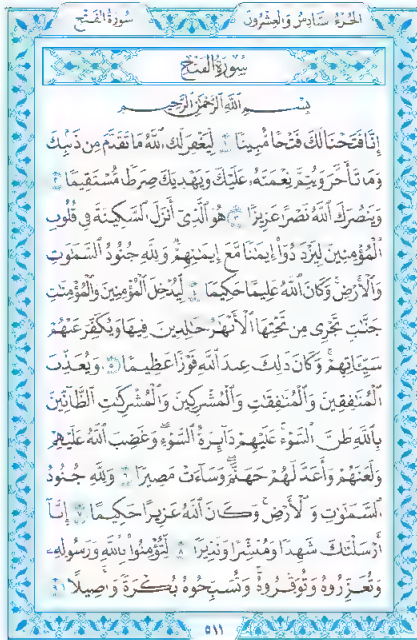 سورة الفتح الجزء السادس والعشرون
سورة الفتح
بسم الله الرحمن الرحيم
إنا فتحنا لك فتحا مبينا ١ ليغفر لك الله ما تقدم من ذنبك
وما تأخر ويتم نعمته عليك ويهديك صرطا مستقيما ٢
وينصرك الله نصرا عزيزا ٣ هو الذي أنزل السكينة في قلوب
المؤمنين ليزدادوا إيمنا مع إيمنهم ولله جنود السموت
والأرض وكان الله عليما حكيما ٤ ليدخل المؤمنين والمؤمنت
جنت تجري من تحتها الأنهر خلدين فيها ويكفر عنهم
سيئاتهم وكان ذلك عند الله فوزا عظيما ٥ ويعذب
المنفقين والمنفقت والمشركين والمشركت الظانين
بالله ظن السوء عليهم دائرة السوء وغضب الله عليهم
ولعنهم وأعد لهم جهنم وساءت مصيرا ٦ ولله جنود
السموت والأرض وكان الله عزيزا حكيما ٧ إنا
أرسلنك شهدا ومبشرا ونذيرا ٨ لتؤمنوا بالله ورسوله
وتعزروه وتوقروه وتسبحوه بكرة وأصيلا ٩
٥١١